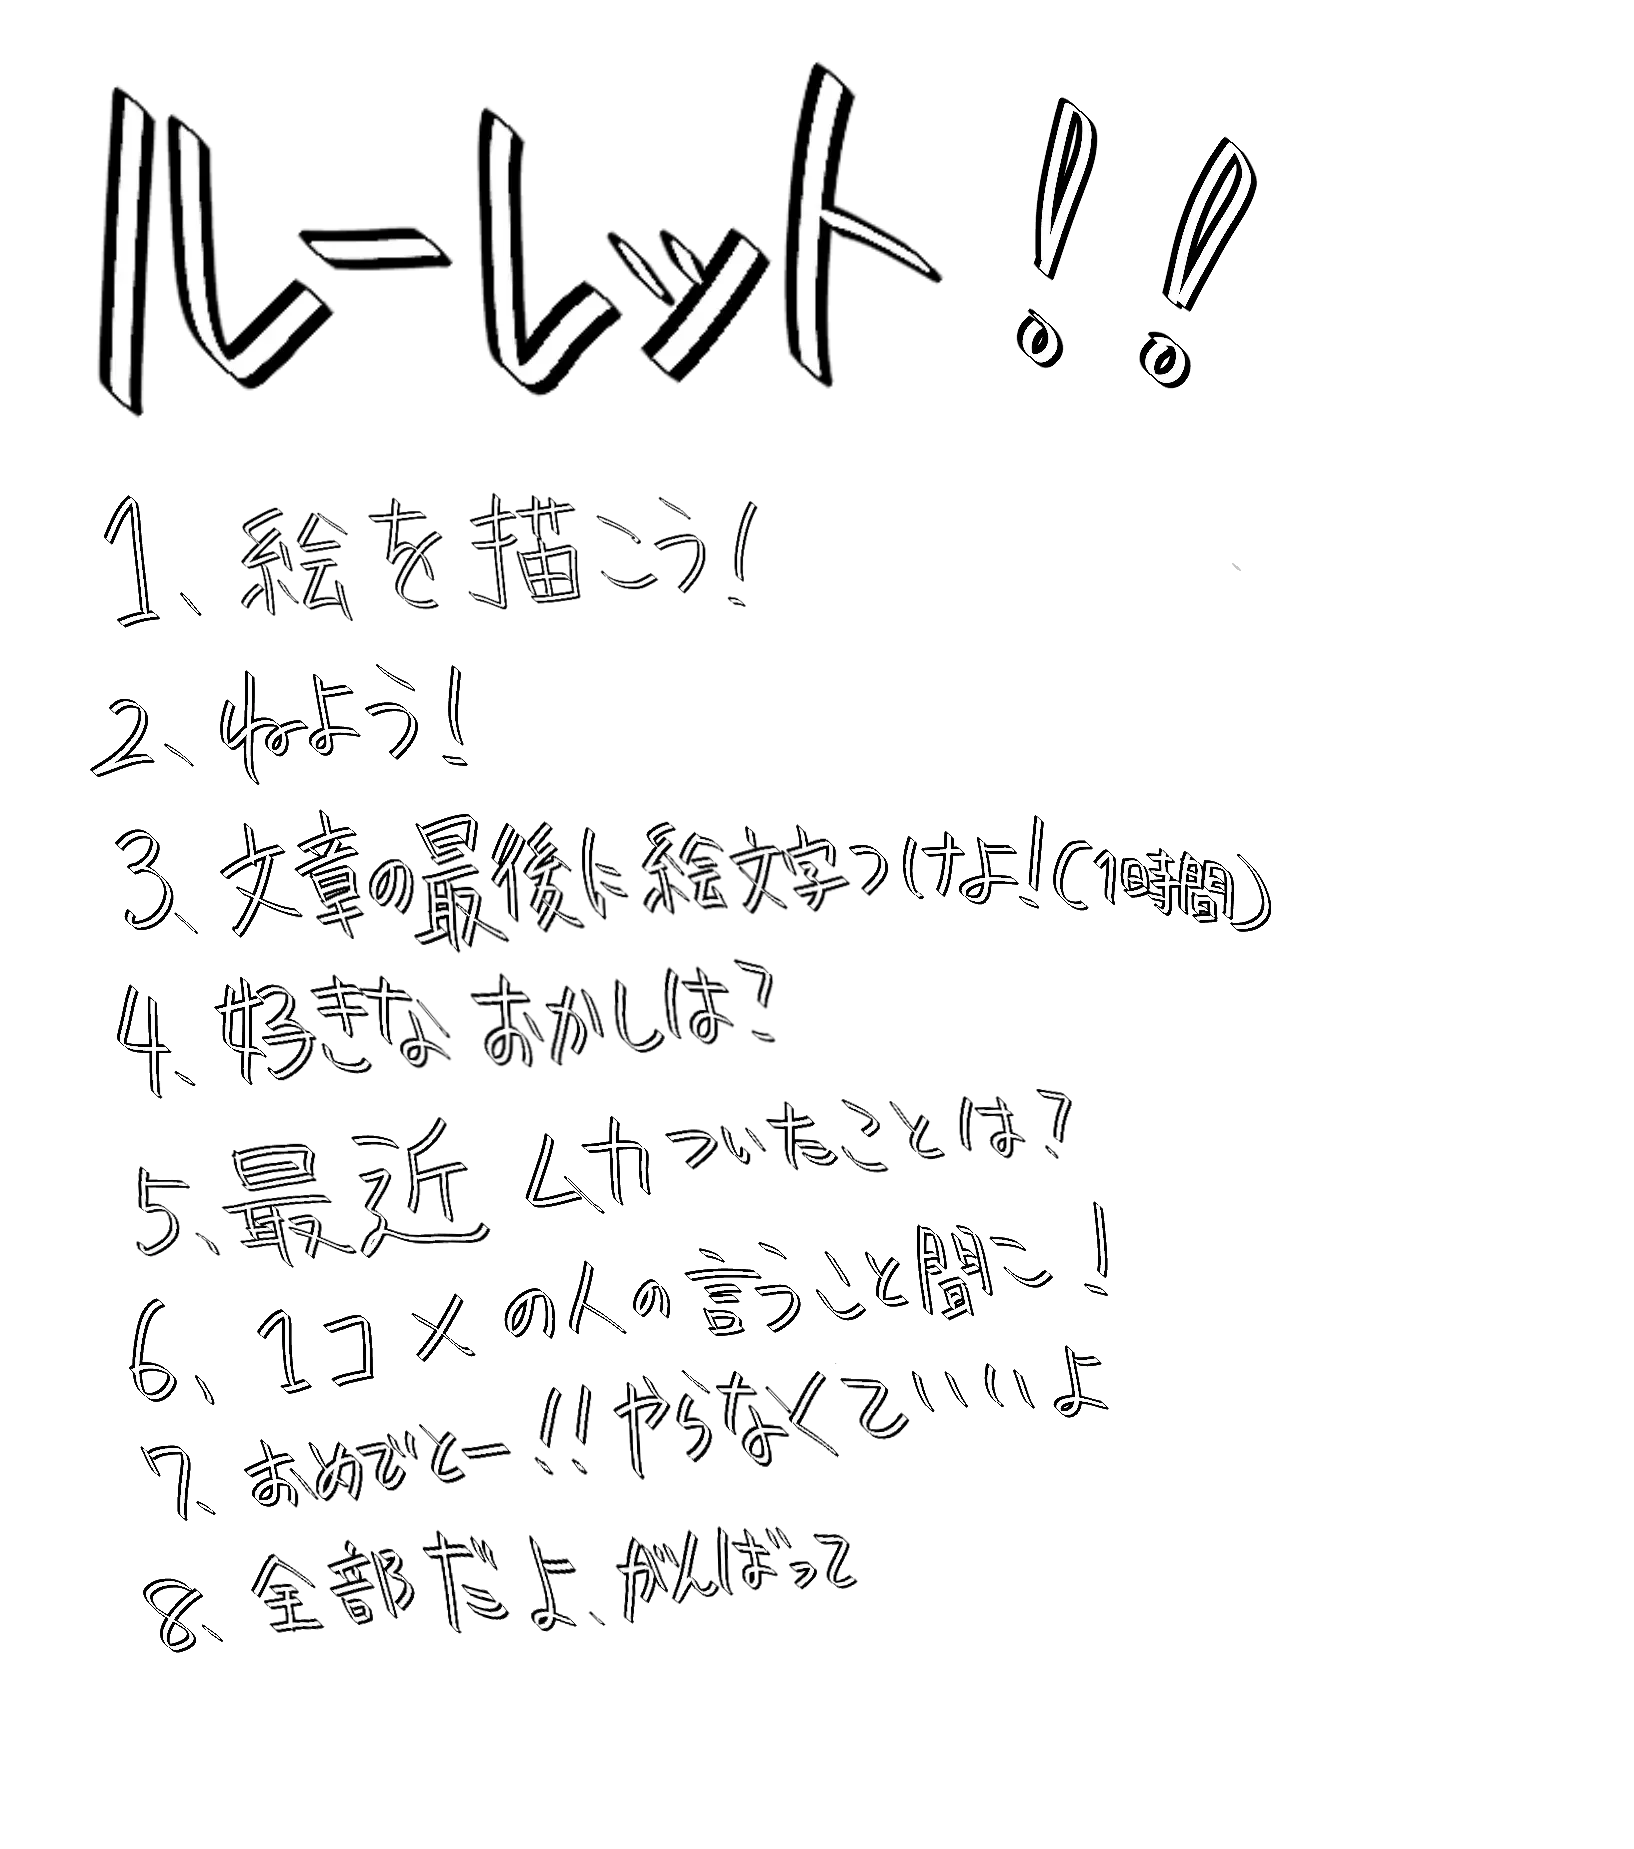 ルーレット!!
1、絵を描こう!
2、ねよう!
3、文章の最後に絵文字つけよ!(1時間)
4、好きなおかしは?
5、最近ムカついたことは?
6、1コメの人の言うこと聞こ!
7、おめでとー!!やらなくていいよ
8、全部だよ、がんばって